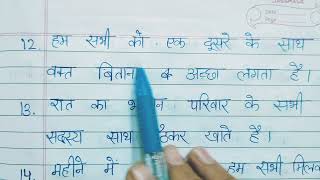 12. हम सभी को एक दूसरे के साथ
वक्त बिताना अच्छा लगता है।
13. रात का परिवार के सभी
सदस्य साथ खाते है।
14. महीने में हम सभी